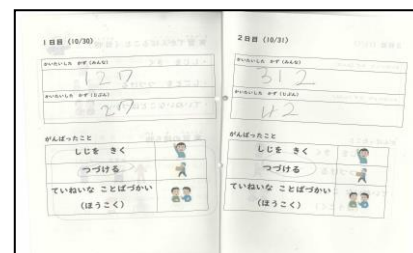 1日目 (10/30)
かいたいした かず (みんな)
127
かいたいした かず (じぶん)
27
がんばったこと
しじを きく
つづける
ていねいな ことばづかい
(ほうこく)
2日目 (10/31)
かいたいした かず (みんな)
312
かいたいした かず (じぶん)
42
がんばったこと
しじを きく
つづける
ていねいな ことばづかい
(ほうこく)